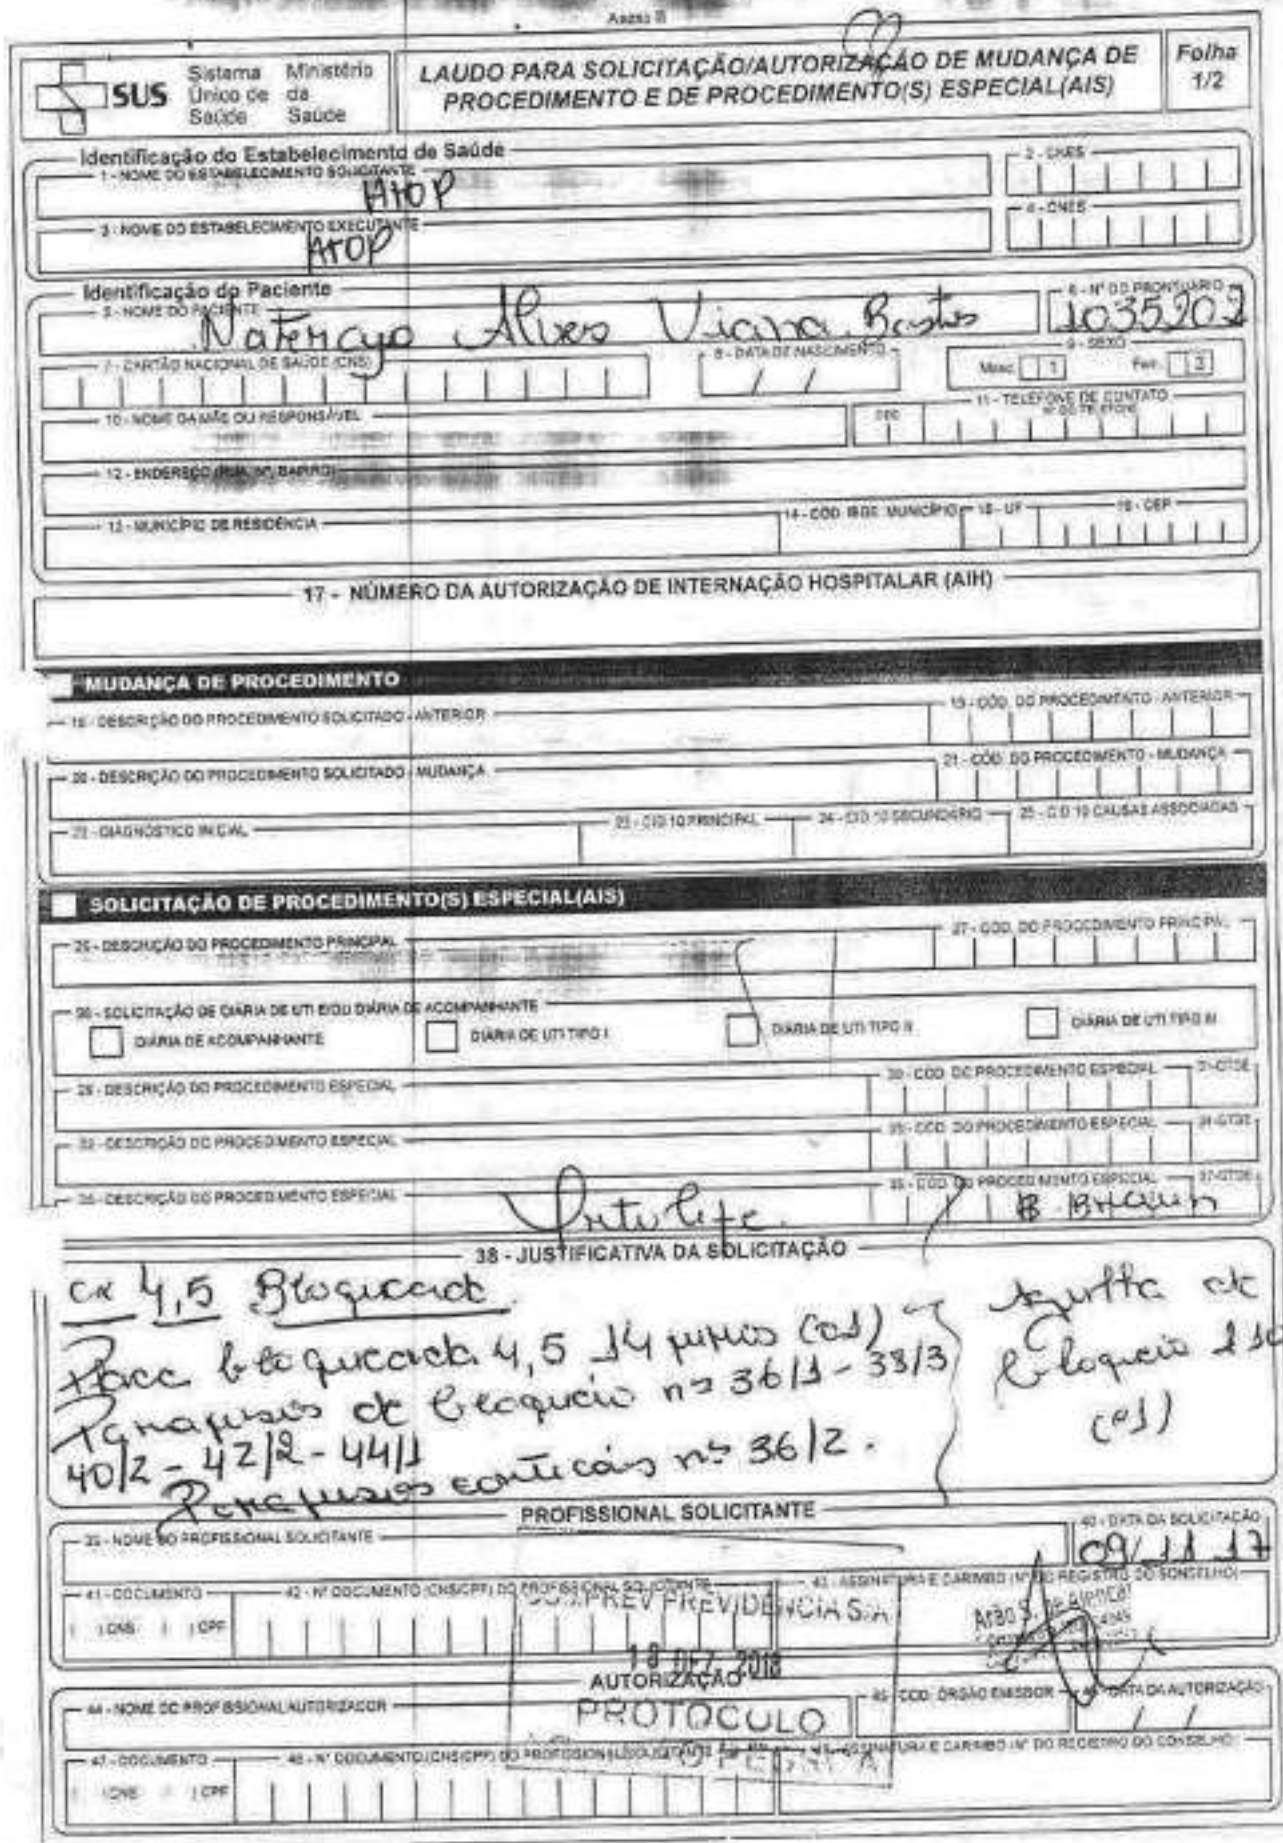 Anexo B
SUS Sistema Único de Saúde Ministério da Saúde
LAUDO PARA SOLICITAÇÃO/AUTORIZAÇÃO DE MUDANÇA DE PROCEDIMENTO E DE PROCEDIMENTO(S) ESPECIAL(AIS)
Folha 1/2
Identificação do Estabelecimento de Saúde
1 - NOME DO ESTABELECIMENTO SOLICITANTE
2 - CNES
HTOP
3 - NOME DO ESTABELECIMENTO EXECUTANTE
4 - CNES
HTOP
Identificação do Paciente
5 - NOME DO PACIENTE
6 - Nº DO PRONTUÁRIO
Alves Viana Bastos
1035202
7 - CARTÃO NACIONAL DE SAÚDE (CNS)
8 - DATA DE NASCIMENTO
/ /
9 - SEXO
Masc. 1 Fem. 3
10 - NOME DA MÃE OU RESPONSÁVEL
11 - TELEFONE DE CONTATO
DDD Nº DO TELEFONE
12 - ENDEREÇO (RUA, Nº, BAIRRO)
13 - MUNICÍPIO DE RESIDÊNCIA
14 - CÓD. IBGE MUNICÍPIO
15 - UF
16 - CEP
17 - NÚMERO DA AUTORIZAÇÃO DE INTERNAÇÃO HOSPITALAR (AIH)
MUDANÇA DE PROCEDIMENTO
18 - DESCRIÇÃO DO PROCEDIMENTO SOLICITADO - ANTERIOR
19 - CÓD. DO PROCEDIMENTO - ANTERIOR
20 - DESCRIÇÃO DO PROCEDIMENTO SOLICITADO - MUDANÇA
21 - CÓD. DO PROCEDIMENTO - MUDANÇA
22 - DIAGNÓSTICO INICIAL
23 - CID 10 PRINCIPAL
24 - CID 10 SECUNDÁRIO
25 - CID 10 CAUSAS ASSOCIADAS
SOLICITAÇÃO DE PROCEDIMENTO(S) ESPECIAL(AIS)
26 - DESCRIÇÃO DO PROCEDIMENTO PRINCIPAL
27 - CÓD. DO PROCEDIMENTO PRINCIPAL
28 - SOLICITAÇÃO DE DIÁRIA DE UTI E/OU DIÁRIA DE ACOMPANHANTE
DIÁRIA DE ACOMPANHANTE
DIÁRIA DE UTI TIPO I
DIÁRIA DE UTI TIPO II
DIÁRIA DE UTI TIPO III
29 - DESCRIÇÃO DO PROCEDIMENTO ESPECIAL
30 - CÓD. DO PROCEDIMENTO ESPECIAL
31 - QTDE
32 - DESCRIÇÃO DO PROCEDIMENTO ESPECIAL
33 - CÓD. DO PROCEDIMENTO ESPECIAL
34 - QTDE
35 - DESCRIÇÃO DO PROCEDIMENTO ESPECIAL
36 - CÓD. DO PROCEDIMENTO ESPECIAL
37 - QTDE
Ortolife
38 - JUSTIFICATIVA DA SOLICITAÇÃO
cx 4,5 Bloqueada
Placa bloqueada 4,5 14 furos (01)
Parafusos de bloqueio nº 36/1 - 38/3
40/2 - 42/2 - 44/1
Parafusos corticais nº 36/2.
bloqueio
(01)
PROFISSIONAL SOLICITANTE
39 - NOME DO PROFISSIONAL SOLICITANTE
40 - DATA DA SOLICITAÇÃO
09/11 17
41 - DOCUMENTO
( ) CNS ( ) CPF
42 - Nº DOCUMENTO (CNS/CPF) DO PROFISSIONAL SOLICITANTE
43 - ASSINATURA E CARIMBO (Nº DO REGISTRO DO CONSELHO)
PREVIDÊNCIA S/A
18 DEZ 2018
AUTORIZAÇÃO
PROTOCOLO
44 - NOME DO PROFISSIONAL AUTORIZADOR
45 - COD. ÓRGÃO EMISSOR
46 - DATA DA AUTORIZAÇÃO
/ /
47 - DOCUMENTO
( ) CNS ( ) CPF
48 - Nº DOCUMENTO (CNS/CPF) DO PROFISSIONAL
49 - ASSINATURA E CARIMBO (Nº DO REGISTRO DO CONSELHO)